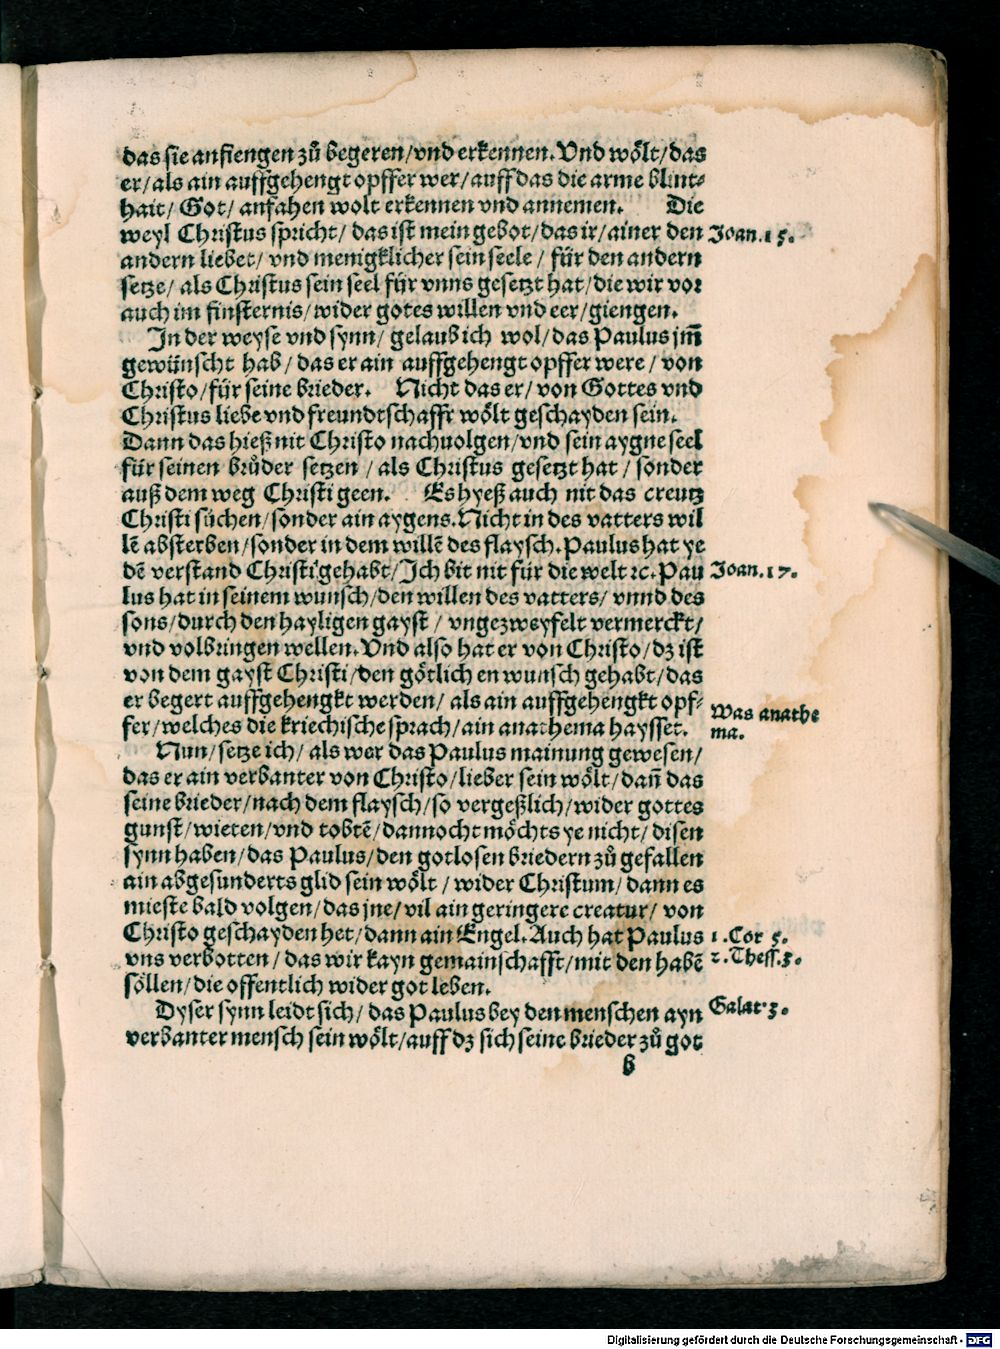 das sie anfiengen zů begeren/vnd erkennen. Vnd woͤlt/das
er/als ain auffgehengt opffer wer/auff das die arme blint⸗
hait/ Got/ anfahen wolt erkennen vnd annemen. Die
weyl Christus spricht/ das ist mein gebot/das ir/ainer den
Joan.15.
andern liebet/ vnd menigklicher sein seele / für den andern
setze/ als Christus sein seel für vnns gesetzt hat/die wir vor
auch im finsternis/wider gotes willen vnd eer/giengen.
In der weyse vnd synn/ gelaub ich wol/das Paulus jm̄
gewünscht hab/das er ain auffgehengt opffer were/von
Christo/für seine brieder. Nicht das er/von Gottes vnd
Christus liebe vnd freundtschafft woͤlt geschayden sein.
Dann das hieß nit Christo nachuolgen/vnd sein aygne seel
für seinen brůder setzen /als Christus gesetzt hat/ sonder
auß dem weg Christi geen. Es hyeß auch nit das creutz
Christi sůchen/sonder ain aygens. Nicht in des vatters wil
lē absterben/sonder in dem willē des flaysch. Paulus hat ye
dē verstand Christi gehabt/Ich bit nit für die welt ꝛc. Pau
Joan.17.
lus hat in seinem wunsch/den willen des vatters/ vnnd des
sons/durch den hayligen gayst / vngezweyfelt vermerckt/
vnd volbringen wellen. Vnd also hat er von Christo/dz ist
von dem gayst Christi/den goͤtlich en wunsch gehabt/das
er begert auffgehengkt werden/ als ain auffgehengkt opf⸗
fer/welches die kriechische sprach/ain anathema haysset.
Was anathe
ma.
Nun/setze ich/ als wer das Paulus mainung gewesen/
das er ain verbanter von Christo/lieber sein woͤlt/dañ das
seine brieder/nach dem flaysch/so vergeßlich/wider gottes
gunst/wieten/vnd tobtē/dannocht moͤchts ye nicht/disen
synn haben/das Paulus/den gotlosen briedern zů gefallen
ain abgesunderts glid sein woͤlt / wider Christum/dann es
mieste bald volgen/das jne/vil ain geringere creatur/ von
Christo geschayden het/dann ain Engel. Auch hat Paulus
1.Cor 5.
vns verbotten/das wir kayn gemainschafft/mit den habē
2.Thess.3.
soͤllen/die offentlich wider got leben.
Dyser synn leidt sich/ das Paulus bey den menschen ayn
Galat.3.
verbanter mensch sein woͤlt/auff dz sich seine brieder zů got
b
Digitalisierung gefördert durch die Deutsche Forschungsgemeinschaft - DFG